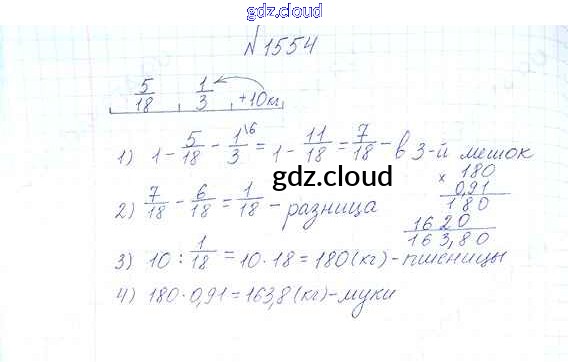 gdz.cloud
№1554
5/18 1/3 +10кг
1) 1 - 5/18 - 1/3\6 = 1 - 11/18 = 7/18 - в 3-й мешок
2) 7/18 - 6/18 = 1/18 - разница
3) 10 : 1/18 = 10 · 18 = 180 (кг) - пшеницы
4) 180 · 0,91 = 163,8 (кг) - муки
× 180
0,91
180
1620
163,80
gdz.cloud
gdz.cloud